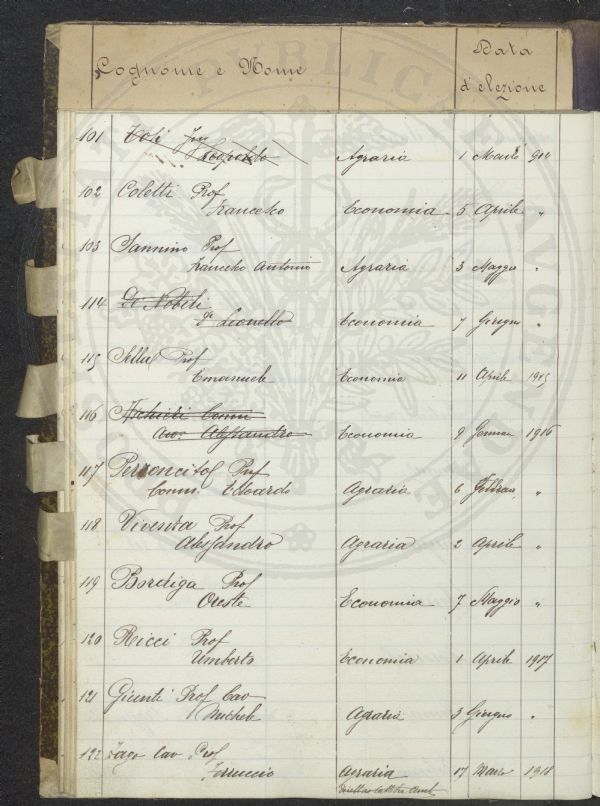 Cognome e Nome
Data
d'elezione
101
Leopoldo Agraria 1 914
102 Coletti Prof
Francesco Economia 5 Aprile "
103 Sannino Prof
Francesco Antonio Agraria 3 Maggio "
114 De Nobili
Leonello Economia 7 Giugno "
115 Sella Prof
Emanuele Economia 11 Aprile 1915
116
Avv. Alessandro Economia 9 1916
117 Perroncito Prof
Comm. Edoardo Agraria 6 "
118 Vivenza Prof
Alessandro Agraria 2 Aprile "
119 Bordiga Prof
Oreste Economia 7 Maggio "
120 Ricci Prof
Umberto Economia 1 Aprile 1917
121 Prof Cav
Michele Agraria 3 Giugno "
122 Cav Prof
Ferruccio Agraria 17 1918